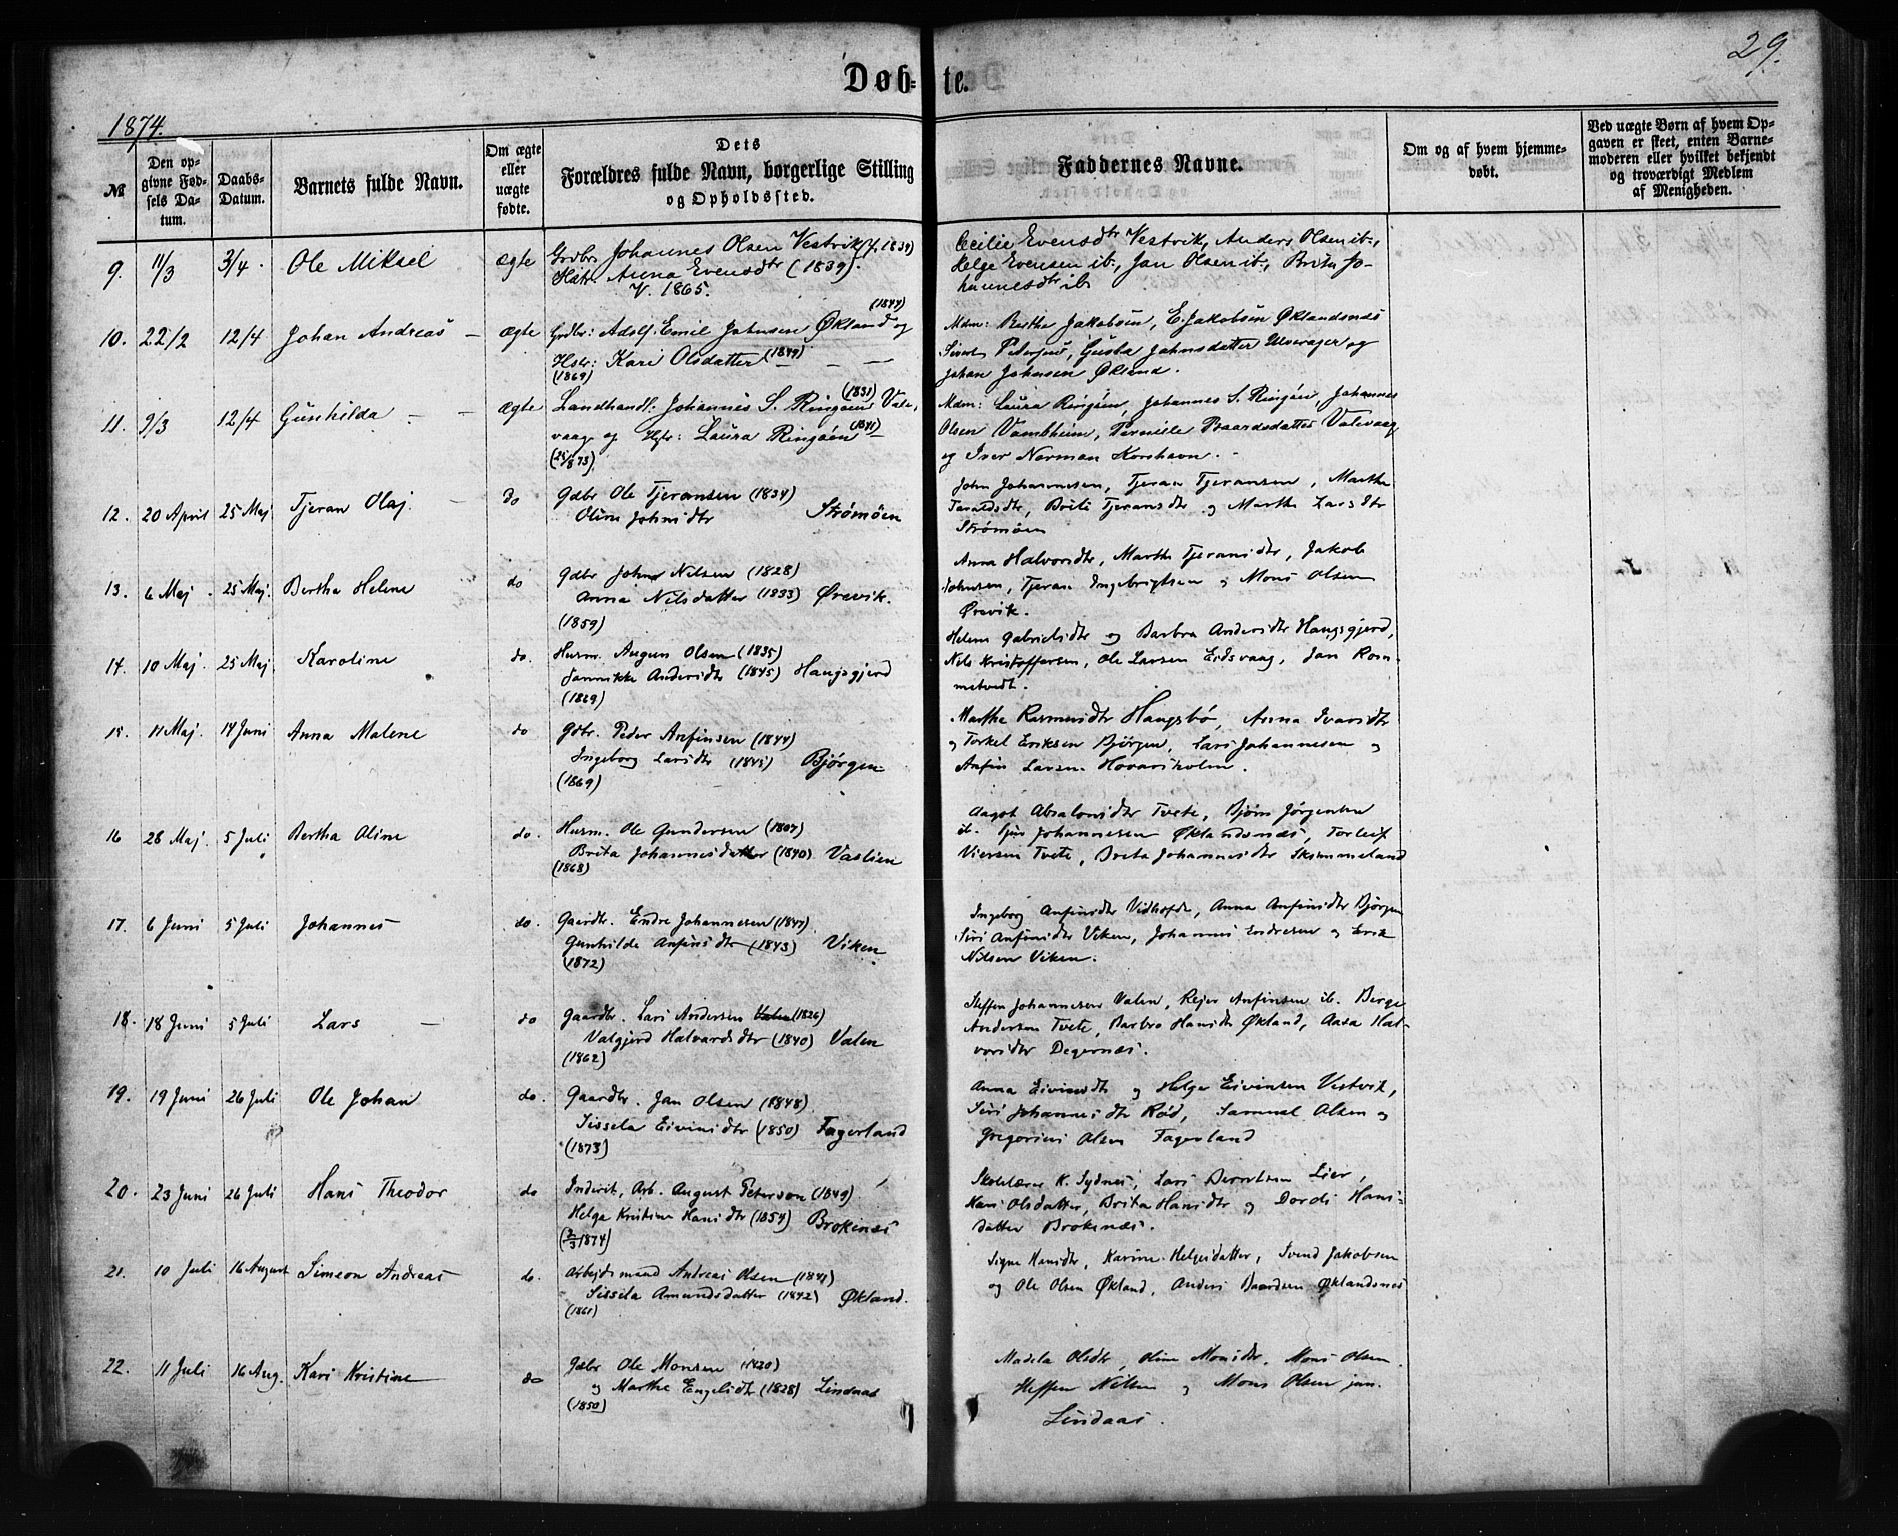 29.
Døb-te.
1874.
№
Den opgivne Fødsels Datum.
Daabs-Datum.
Barnets fulde Navn.
Om ægte eller uægte fødte.
Dets Forældres fulde Navn, borgerlige Stilling og Opholdssted.
Faddernes Navne.
Om og af hvem hjemmedøbt.
Ved uægte Børn af hvem Opgaven er skeet, enten Barnemoderen eller hvilket bekjendt og troværdigt Medlem af Menigheden.
9. 11/3 3/4. Ole Mikael ægte Grdbr. Johannes Olsen Vestvik (f. 1839)
Hstr. Anna Evensdtr (1839).
V. 1865.
Cecilie Evensdtr Vestvik, Anders Olsen ib.,
Helge Evensen ib., Jan Olsen ib., Brita Jo-
hannesdtr ib
10. 22/2 12/4 Johan Andreas – ægte Grdbr: Adolf Emil Johnsen Økland og (1844)
Hstr: Kari Olsdatter (1849) – – –
(1869)
Mdm: Bertha Jakobsen, E. Jakobsen Øklandsnæs
Petersens, Gusta Johnsdatter og
Johan Johnsen Økland.
11. 9/3 12/4 Gunhilda – – ægte Landhandl: Johannes S. Ringøen (1831) Vale-
vaag og Hstr: Laura Ringøen (1841) –
(25/8 73)
Mdm: Laura Ringøen, Johannes S. Ringøen, Johannes
Olsen Vambheim, Pernille Baardsdatter Valevaag
og Iver Norman Korshavn.
12. 20 April 25 Maj Tjeran Olaj – do Gdbr Ole Tjeransen (1834)
Oline Johnsdtr Strømøen
John Johannesen, Tjeran Tjeransen, Martha
Taraldsdtr, Brite Tjeransdtr og Martha Larsdtr
Strømøen
13. 6 Maj. 25 Maj. Bertha Helene do Gdbr John Nilsen (1828)
Anna Nilsdatter (1833) Ørevik.
(1859)
Anna Halvorsdtr, Martha Tjeransdtr, Jakob
Johnsen, Tjeran Ingebrigtsen og Mons Olsen
Ørevik.
14. 10 Maj. 25 Maj. Karoline do. Husm. Augun Olsen (1835)
Jannikke Andersdtr (1845) Haugsgjerd
(1869)
Helene Gabrielsdtr og Barbra Andersdtr Haugsgjerd,
Nils Kristoffersen, Ole Larsen Eidsvaag, Jan Rom-
metvedt.
15. 11 Maj. 14 Juni Anna Malene do Gdbr. Peder Anfinsen (1844)
Ingeborg Larsdtr (1845) Bjørgen
(1869)
Martha Rasmusdtr Haugsbø, Anna Ivarsdtr
og Torkel Eriksen Bjørgen, Lars Johannesen og
Anfin Larsen Hovarsholm.
16 28 Maj. 5 Juli Bertha Oline do. Husm. Ole Gundersen (1807)
Brita Johannesdatter (1840) Vaslien
(1868)
Aagot Absalonsdtr Tvete, Bjørn Jørgensen
ib. Johannesen Øklandsnæs, Torleif
Viersen Tvete, Brita Johannesdtr Skimmeland
17. 6 Juni 5 Juli Johannes do. Gaardbr. Endre Johannesen (1847)
Gunhilde Anfinsdtr (1843) Viken
(1872)
Ingeborg Anfinsdtr, Anna Anfinsdtr Bjørgen
Siri Anfinsdtr Viken, Johannes Endresen og Erik
Nilsen Viken.
18. 18 Juni 5 Juli Lars – do Gaardbr. Lars Andersen Valen (1826)
Valgjerd Halvardsdtr (1840) Valen
(1862)
Steffen Johannesen Valen, Rejer Anfinsen ib. Berge
Andersen Tvete, Barbro Hansdtr Økland, Aasa Hal-
vorsdtr Degernæs.
19. 19 Juni 26 Juli Ole Johan do. Gaardbr. Jan Olsen (1848)
Sissela Eivinsdtr (1850) Fagerland
(1873)
Anna Eivinsdtr og Helge Eivinsen Vestvik,
Siri Johannesdtr Rød, Samuel Olsen og
Gregorius Olsen Fagerland
20. 23 Juni 26 Juli Hans Theodor do Inderst, Arb. August Peterson (1849)
Helga Kristine Hansdtr (1854) Brokenæs
(2/3 1874)
Skolelærer K. Sydnes, Lars Berntsen Lier,
Kari Olsdatter, Brita Hansdtr og Dordi Hans-
datter Brokenæs.
21. 10 Juli 16 August Simeon Andreas do. Arbejdsmand Andreas Olsen (1841)
Sissela Amundsdatter (1842) Økland.
(1861)
Signe Hansdtr, Karine Helgesdatter, Svend Jakobsen
og Ole Olsen Økland, Anders Baardsen Øklandsnæs
22. 11 Juli 16 Aug. Kari Kristine do Gdbr Ole Monsen (1820)
og Martha Engelsdtr (1828) Lindaas
(1850)
Madela Olsdtr, Oline Monsdtr, Mons Olsen.
Steffen Nilsen og Mons Olsen jun.
Lindaas.